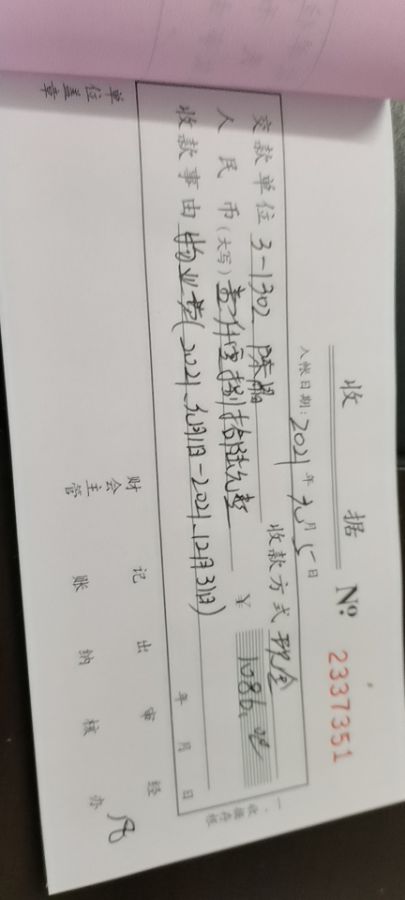 收据
№ 2337351
入帐日期：2021年 月15日
交款单位 3-1302 陈晶 收款方式 现金
人民币（大写）壹仟零捌拾陆元整 ¥ 1086.
收款事由 物业费(2021. 月1日-2021.12月31日)
年 月 日
一、收据存根
单位盖章 财会主管 记账 出纳 审核 经办